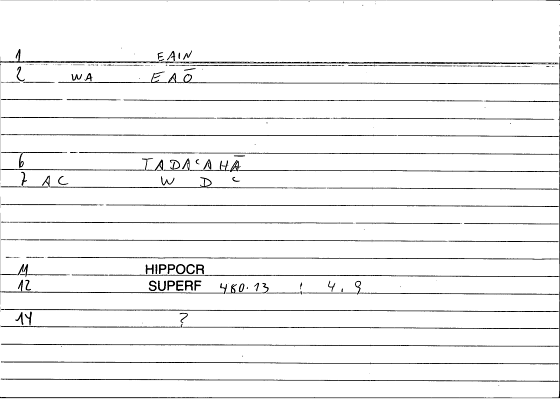 1 EAIN
2 WA EAŌ
6 TADAᶜAHĀ
7 AC W D ᶜ
11 HIPPOCR
12 SUPERF 480.13 ; 4.9
14 ?